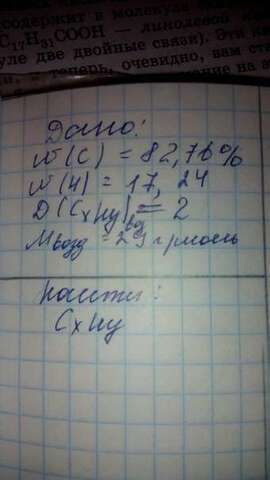 содержит в молекуле
C₁₇H₃₁COOH — линолевой
уле две двойные связи). Эти
теперь, очевидно, вам ст
Дано:
w(C) = 82,76%
w(H) = 17,24
D(CxHy) возд = 2
Mвозд = 29 г/моль
Найти:
CxHy